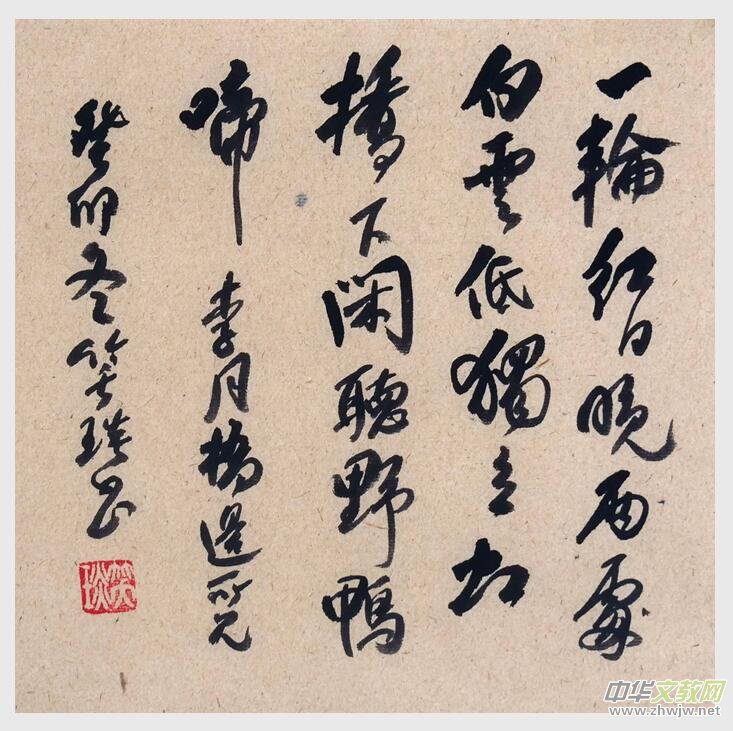 一輪紅日晚雨霽
白雲低獨立村
橋下閑聽野鴨
啼 李月橋邊所見
癸卯冬笑琰書
笑琰
中华文教网
www.zhwjw.net